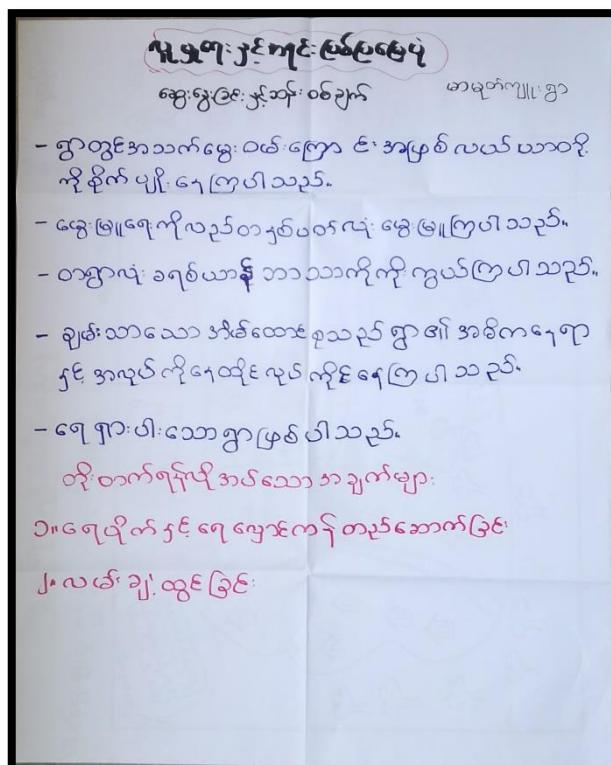 လူမှုရေး နှင့် ကျင်းဖြစ်ပြမြေပုံ
ဆွေးနွေးခြင်း နှင့် ဆန်းစစ်ချက်
မာမုတ်ကျူးရွာ
- ရွာတွင်အသက်မွေး ဝမ်းကြောင်းအဖြစ် လယ်ယာဝကို
ကို စိုက်ပျိုးနေကြပါသည်။
- မွေးမြူရေးကိုလည်တနှစ်ပတ်လုံး မွေးမြူကြပါသည်။
- တရွာလုံး ခရစ်ယာန် ဘာသာကိုကိုးကွယ်ကြပါသည်။
- ချမ်းသာသော အိမ်ထောင်စုသည် ရွာ၏ အဓိကနေရာ
နှင့် အလုပ်ကိုနေထိုင်လုပ်ကိုင်နေကြပါသည်။
- ရေရှားပါးသောရွာဖြစ်ပါသည်။
တိုးတက်ရန်လိုအပ်သောအချက်များ
၁။ ရေပိုက်နှင့် ရေလှောင်ကန် တည်ဆောက်ခြင်း
၂။ လမ်းချဲ့ထွင်ခြင်း